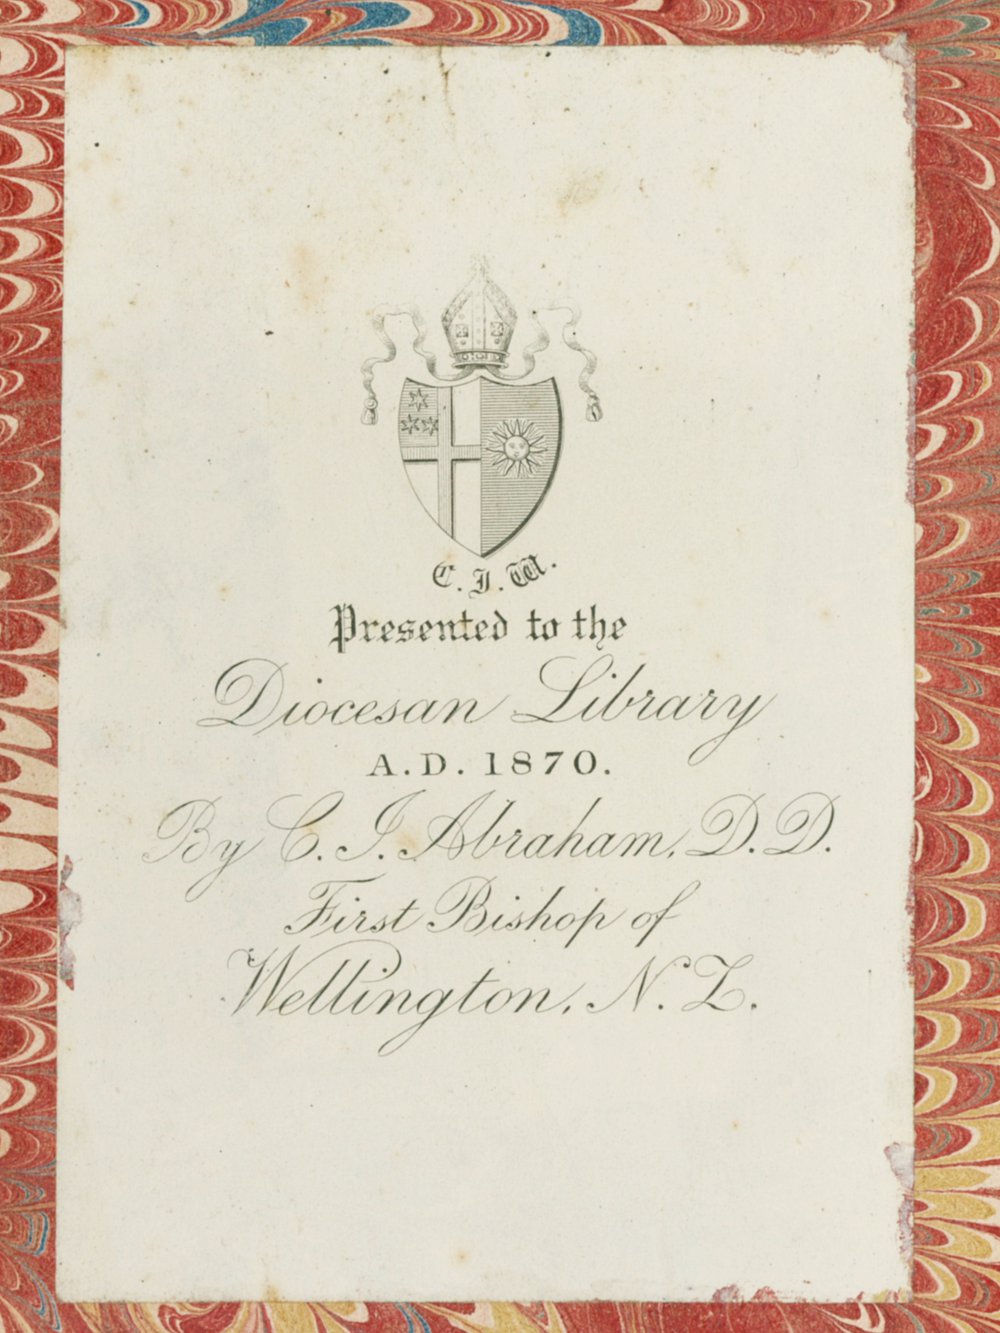 C. J. W.
Presented to the
Diocesan Library
A.D. 1870.
By C. J. Abraham, D.D.
First Bishop of
Wellington, N.Z.